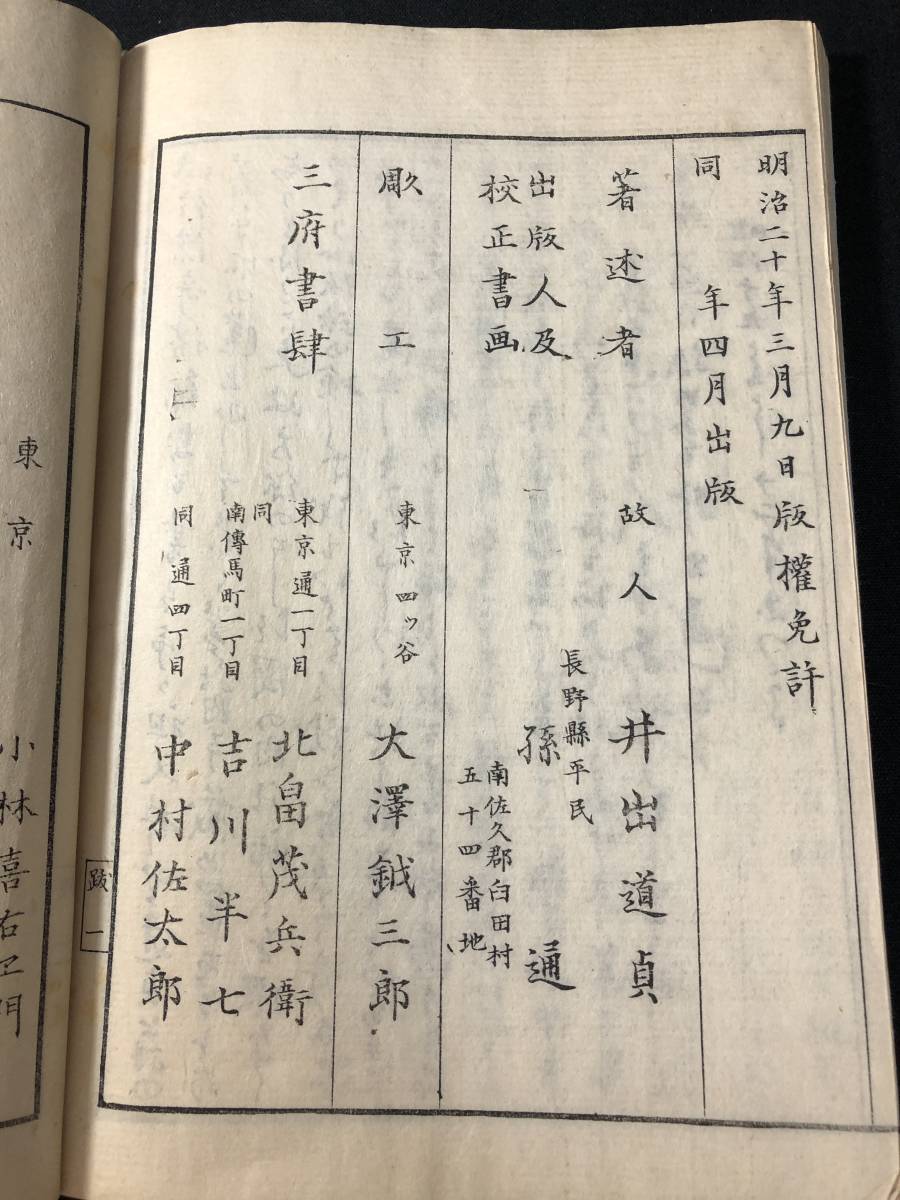 明治二十年三月九日版權免許
同　年四月出版
著述者　故人　井出道貞
出版人及
校正書画
長野縣平民
孫　通
南佐久郡臼田村
五十四番地
彫工　東京四ッ谷　大澤鉞三郎
三府書肆
東京通一丁目　北畠茂兵衛
同南傳馬町一丁目　吉川半七
同通四丁目　中村佐太郎
跋　一
東京
小林喜右エ門